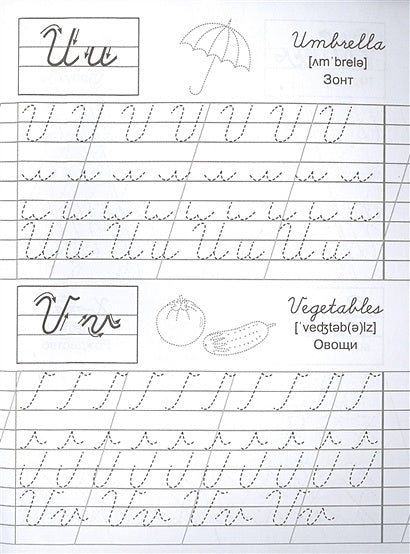 Uu
Umbrella
[ʌmˈbrelə]
Зонт
U U U U U U U
u u u u u u u u
Uu Uu Uu Uu
Vv
Vegetables
[ˈveʤtəb(ə)lz]
Овощи
Vv Vv Vv Vv